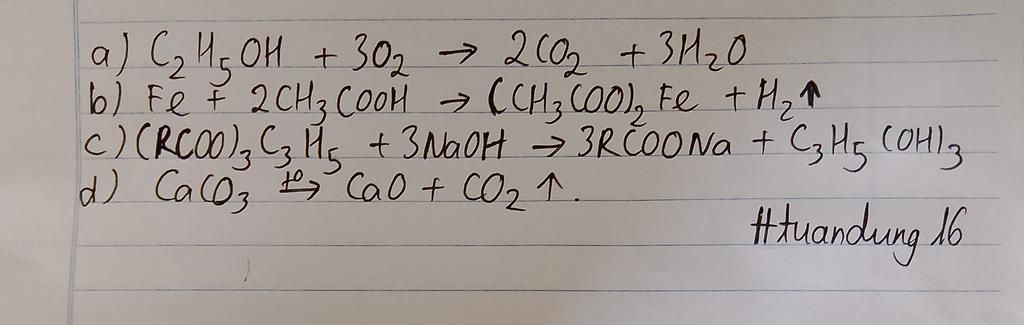 a) C₂H₅OH + 3O₂ → 2CO₂ + 3H₂O
b) Fe + 2CH₃COOH → (CH₃COO)₂Fe + H₂↑
c) (RCOO)₃C₃H₅ + 3NaOH → 3RCOONa + C₃H₅(OH)₃
d) CaCO₃ →(t⁰) CaO + CO₂↑.
#tuandung16